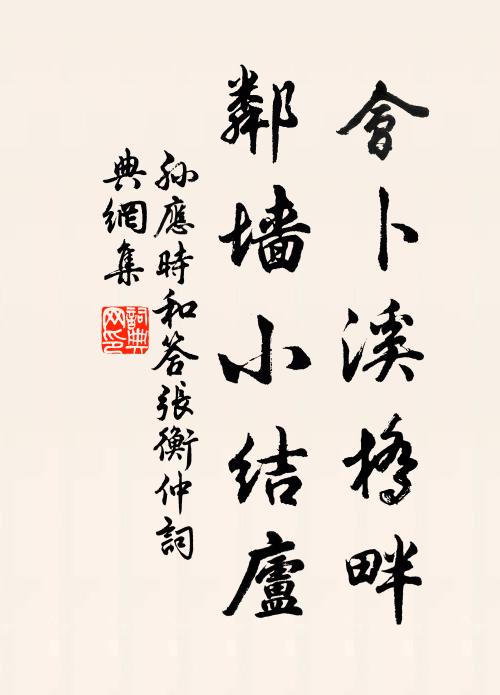 會卜溪橋畔
鄰墻小結廬
孫應時和答張衡仲詞
典網集
詞典網印